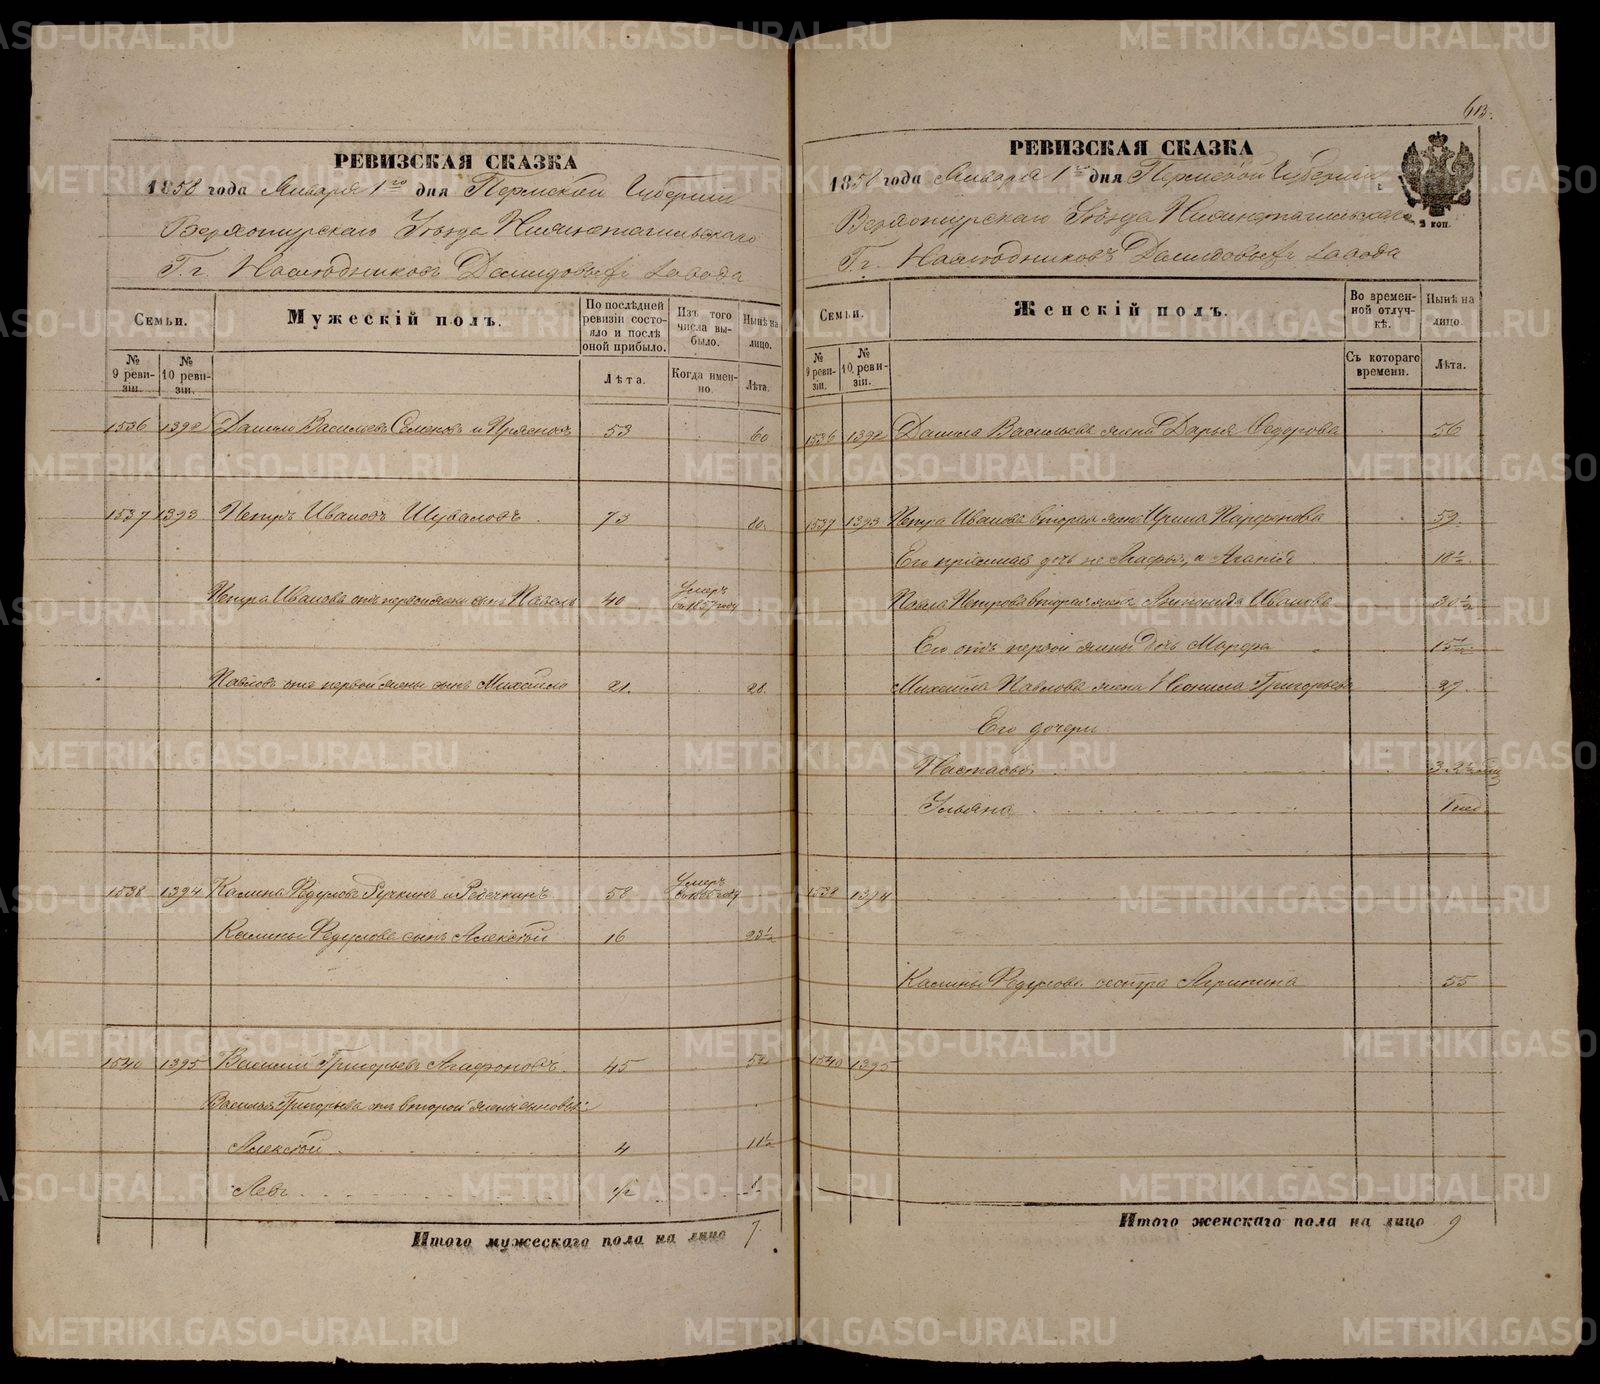 613.
РЕВИЗСКАЯ СКАЗКА
1858 года Января 1го дня Пермской Губернии
Верхотурскаго Уѣзда Нижнетагильскаго
Г.г. Наслѣдниковъ Демидовыхъ завода
Семьи.
Мужескій полъ.
По послѣдней ревизіи состояло и послѣ оной прибыло.
Изъ того числа выбыло.
Нынѣ на лицо.
№ 9 ревизіи.
№ 10 ревизіи.
Лѣта.
Когда именно.
Лѣта.
1536 1392 Данило Васильевъ 53 60
1537 1393 Петръ Ивановъ Шуваловъ 73 80.
Петра Иванова отъ первой жены сынъ Павелъ 40 Умеръ въ 1857 году
Павловъ отъ первой жены сынъ Михайло 21. 28.
1538 1394 Калина Федуловъ Ручкинъ и 58 Умеръ
Калины Федулова сынъ Алексѣй 16 23½
1540 1395 Василий Григорьевъ Агафоновъ 45 52
Василья Григорьева отъ второй жены сыновья:
Алексѣй 4 11½
Левъ
Итого мужескаго пола на лицо 7.
РЕВИЗСКАЯ СКАЗКА
1858 года Января 1го дня Пермской Губернии
Верхотурскаго Уѣзда Нижнетагильскаго
Г.г. Наслѣдниковъ Демидовыхъ завода
2 коп.
Семьи.
Женскій полъ.
Во временной отлучкѣ.
Нынѣ на лицо.
№ 9 ревизіи.
№ 10 ревизіи.
Съ котораго времени.
Лѣта.
1536 1392 Данила Васильева жена Дарья Федорова 56
1537 1393 Петра Иванова вторая жена Ирина Парфенова 59.
Его дочь не Агафья, а Агапія 18½
Павла Петрова вторая жена Иванова 30½
Его отъ первой жены дочь Марфа 15½
Михайла Павлова жена Неонила Григорьева 27.
Его дочери
Настасья
Ульяна 1 нед.
1538 1394
Калины Федулова сестра Агрипина 55
1540 1395
Итого женскаго пола на лицо 9
METRIKI.GASO-URAL.RU